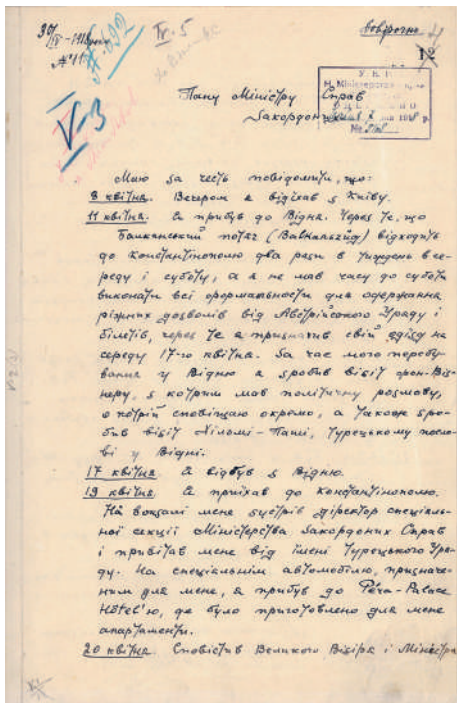 30/IV-1918 року
№ 11
довірочно
12
IV. 5
V-3
У. Н. Р.
Пану Міністру Справ
Закордонних
Маю за честь повідомити, що:
8 квітня. Вечером я відїхав з Київу.
11 квітня. Я прибув до Відня. Через те, що
Балканський потяг (Balkanzüg) відходить
до Константінополю два рази в тиждень в се-
реду і суботу, а я не мав часу до суботи
виконати всі формальности для одержання
ріжних дозволів від Австрійського Уряду і
білєтів, через те я призначив свій відїзд на
середу 17-го квітня. За час мого перебу-
вання у Відню я зробив візіт фон-Віз-
неру, з котрим мав політичну розмову,
о котрій сповіщаю окремо, а також зро-
бив візіт Хілómі-Паші, турецькому посло-
ві у Відні.
17 квітня Я відбув з Відню.
19 квітня Я приїхав до Константінополю.
На вокзалі мене зустрів діректор спеціаль-
ної секції Міністерства Закордоних Справ
і привітав мене від імені турецького Уря-
ду. На спеціальнім автомобілю, призначе-
ним для мене, я прибув до Péra-Palace
Hôtel'ю, де було приготовлено для мене
апартаменти.
20 квітня. Сповістив Великого Візіра і Міністра